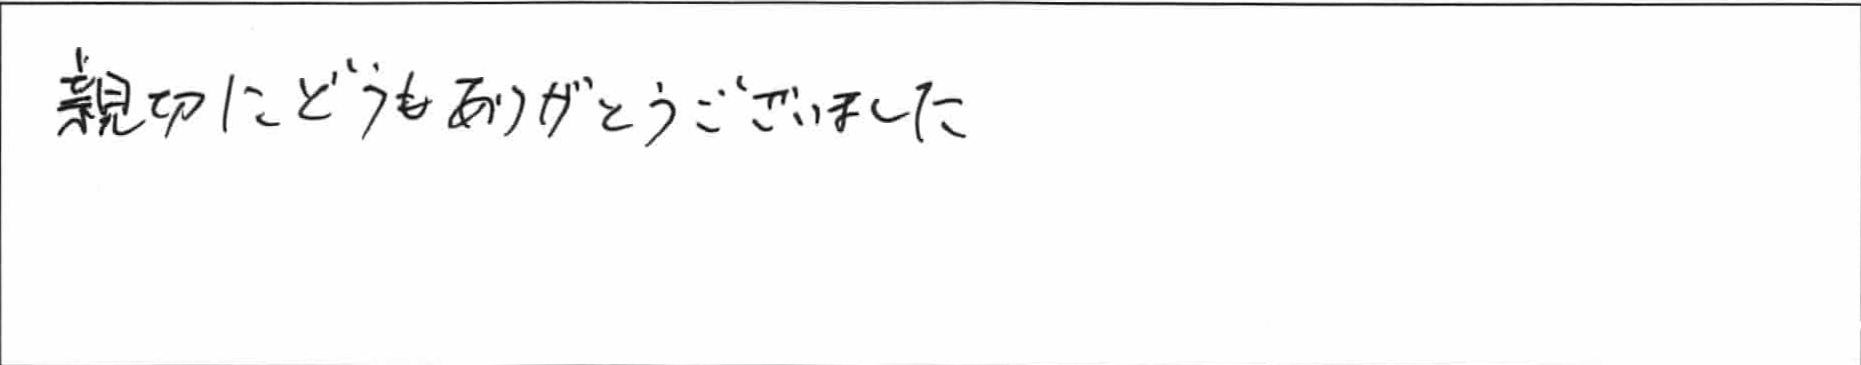 親切にどうもありがとうございました